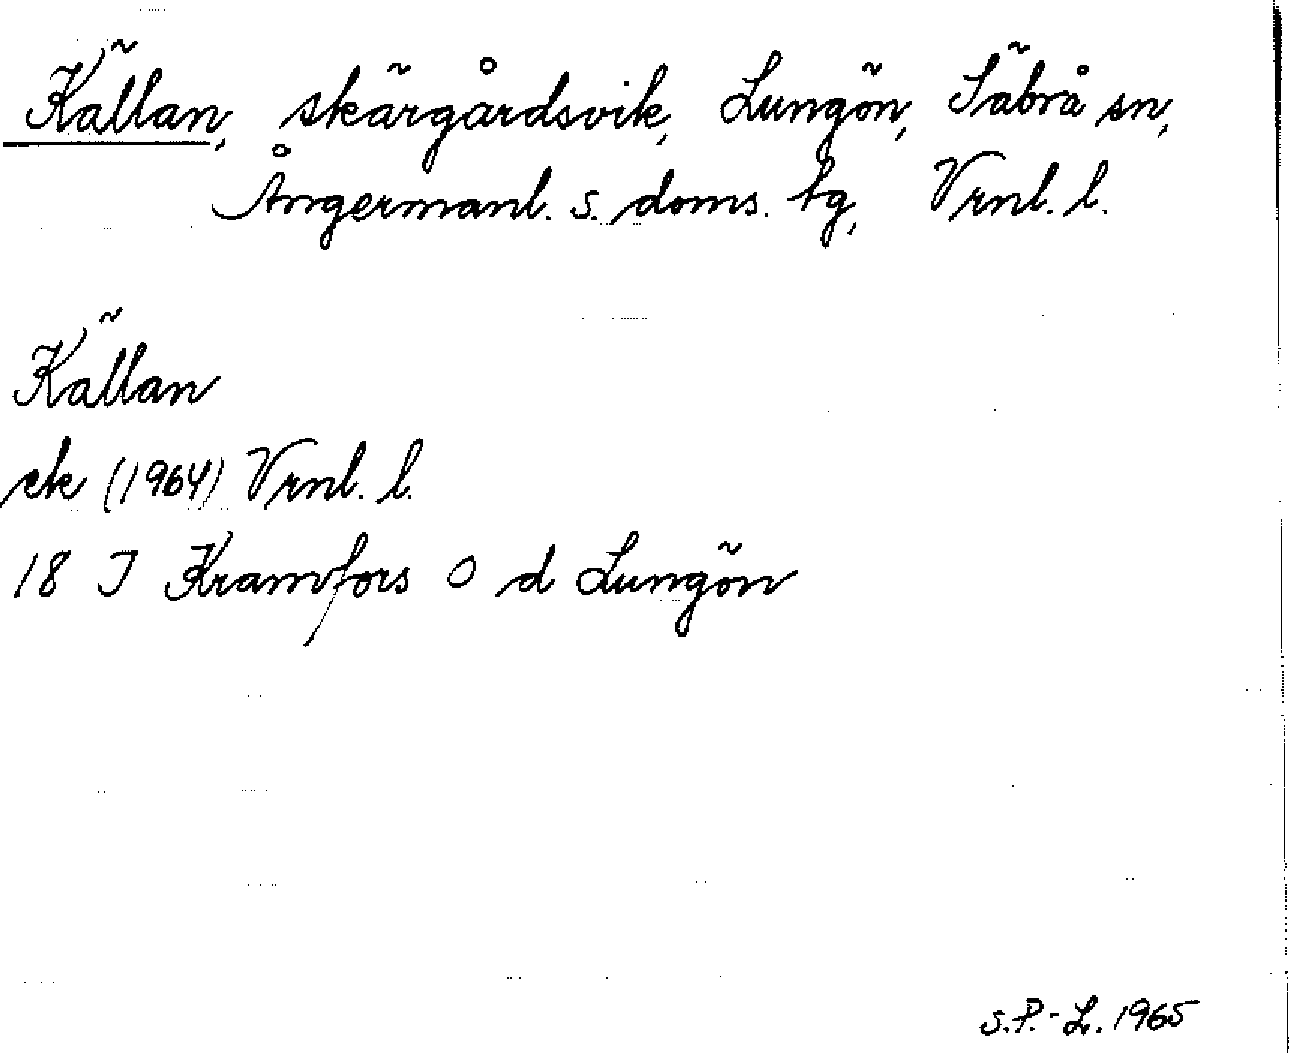 Källan, skärgårdsvik, Lungön, Säbrå sn,
Ångermanl. s. doms. tg, Vrnl. l.
Källan
ek (1964) Vrnl. l.
18 I Kramfors O d Lungön
S.P.-L. 1965